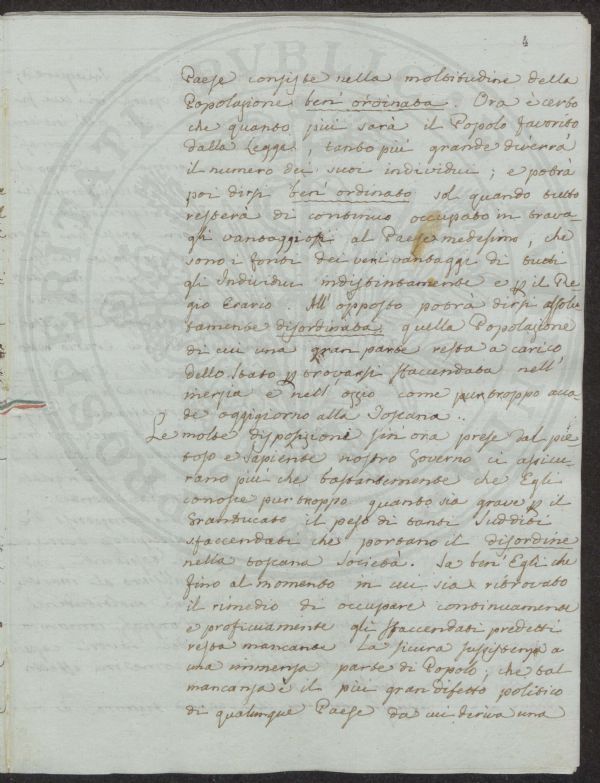 4
Paese consiste nella moltitudine della
Popolazione ben' ordinata. Ora è certo
che quanto più sarà il Popolo favorito
dalla Legge, tanto più grande diverrà
il numero dei suoi individui; e potrà
poi dirsi ben' ordinato sol quando tutto
resterà di continuo occupato in trava
gli vantaggiosi al Paese medesimo, che
sono i fonti dei veri vantaggi di tutti
gli Individui indistintamente e p il Re
gio Erario. All' opposto potrà dirsi assolu
tamente disordinata quella Popolazione
di cui una gran parte resta a carico
dello Stato p trovarsi sfacendata nell'
inerzia e nell' ozio come pur troppo acca
de oggigiorno alla Toscana..
Le molte disposizioni fin' ora prese dal pie
toso e sapiente nostro Governo ci assicu
rano più che bastantemente che Egli
conosce pur troppo quanto sia grave p il
Granducato il peso di tanti Sudditi
sfaccendati che portano il disordine
nella toscana società. Sa ben' Egli che
fino al momento in cui sia ritrovato
il rimedio di occupare continuamente
e proficuamente gli sfaccendati predetti
resta mancante la sicura sussistenza a
una immensa parte di Popolo; che tal
mancanza è il più gran difetto politico
di qualunque Paese da cui deriva una